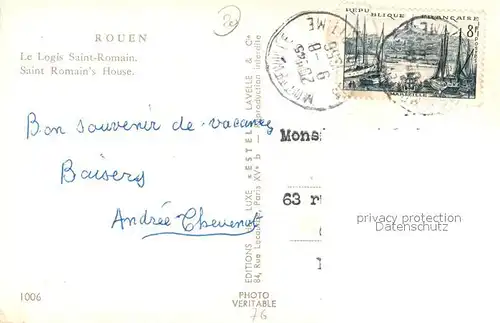 ROUEN
Le Logis Saint-Romain.
Saint Romain's House.
Bon souvenir de vacances
Baisers
Andrée Thevenot
1006
EDITIONS DE LUXE « ESTEL » LAVELLE & Cie
84, Rue Paris XVe — Reproduction interdite
PHOTO
VERITABLE
76
REPUBLIQUE FRANÇAISE
8F
MARSEILLE
Mons
63 r
privacy protection
Datenschutz